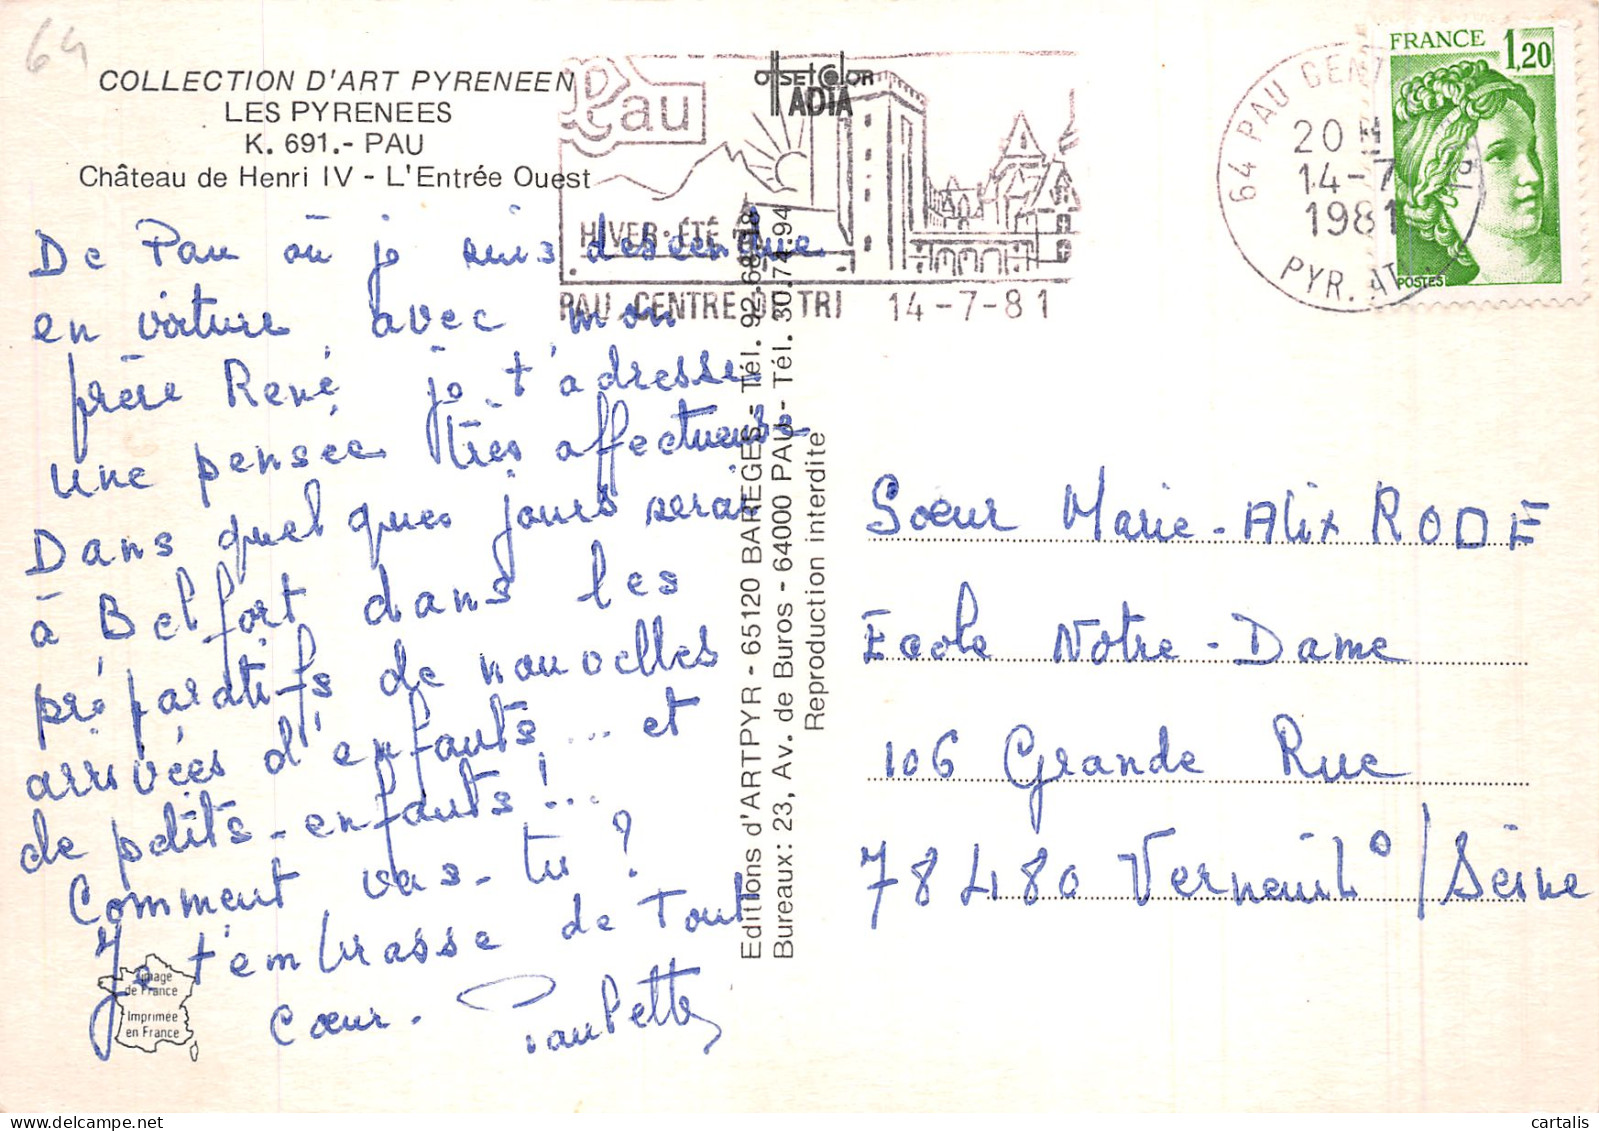 64
COLLECTION D'ART PYRENEEN
LES PYRENEES
K. 691.- PAU
Château de Henri IV - L'Entrée Ouest
De Pau où je suis descendue
en voiture avec mon
frère René je t'adresse
une pensée très affectueuse
Dans quelques jours serai
à Belfort dans les
préparatifs de nouvelles
arrivées d'enfants... et
de petits-enfants!...
Comment vas-tu?
Je t'embrasse de Tout
cœur. Paulette
Image
de France
Imprimée
en France
offset color
IADIA
Pau
HIVER·ÉTÉ
PAU CENTRE DE TRI 14-7-81
Editions d'ARTPYR - 65120 BAREGES - Tél. 92.68.
Bureaux: 23, Av. de Buros - 64000 PAU - Tél. 30.74.94
Reproduction interdite
64 PAU CENT
20 H
14-7
1981
PYR. AT
FRANCE 1,20
POSTES
Sœur Marie-Alix RODE
Ecole Notre-Dame
106 Grande Rue
78480 Verneuil s/Seine
cartalis